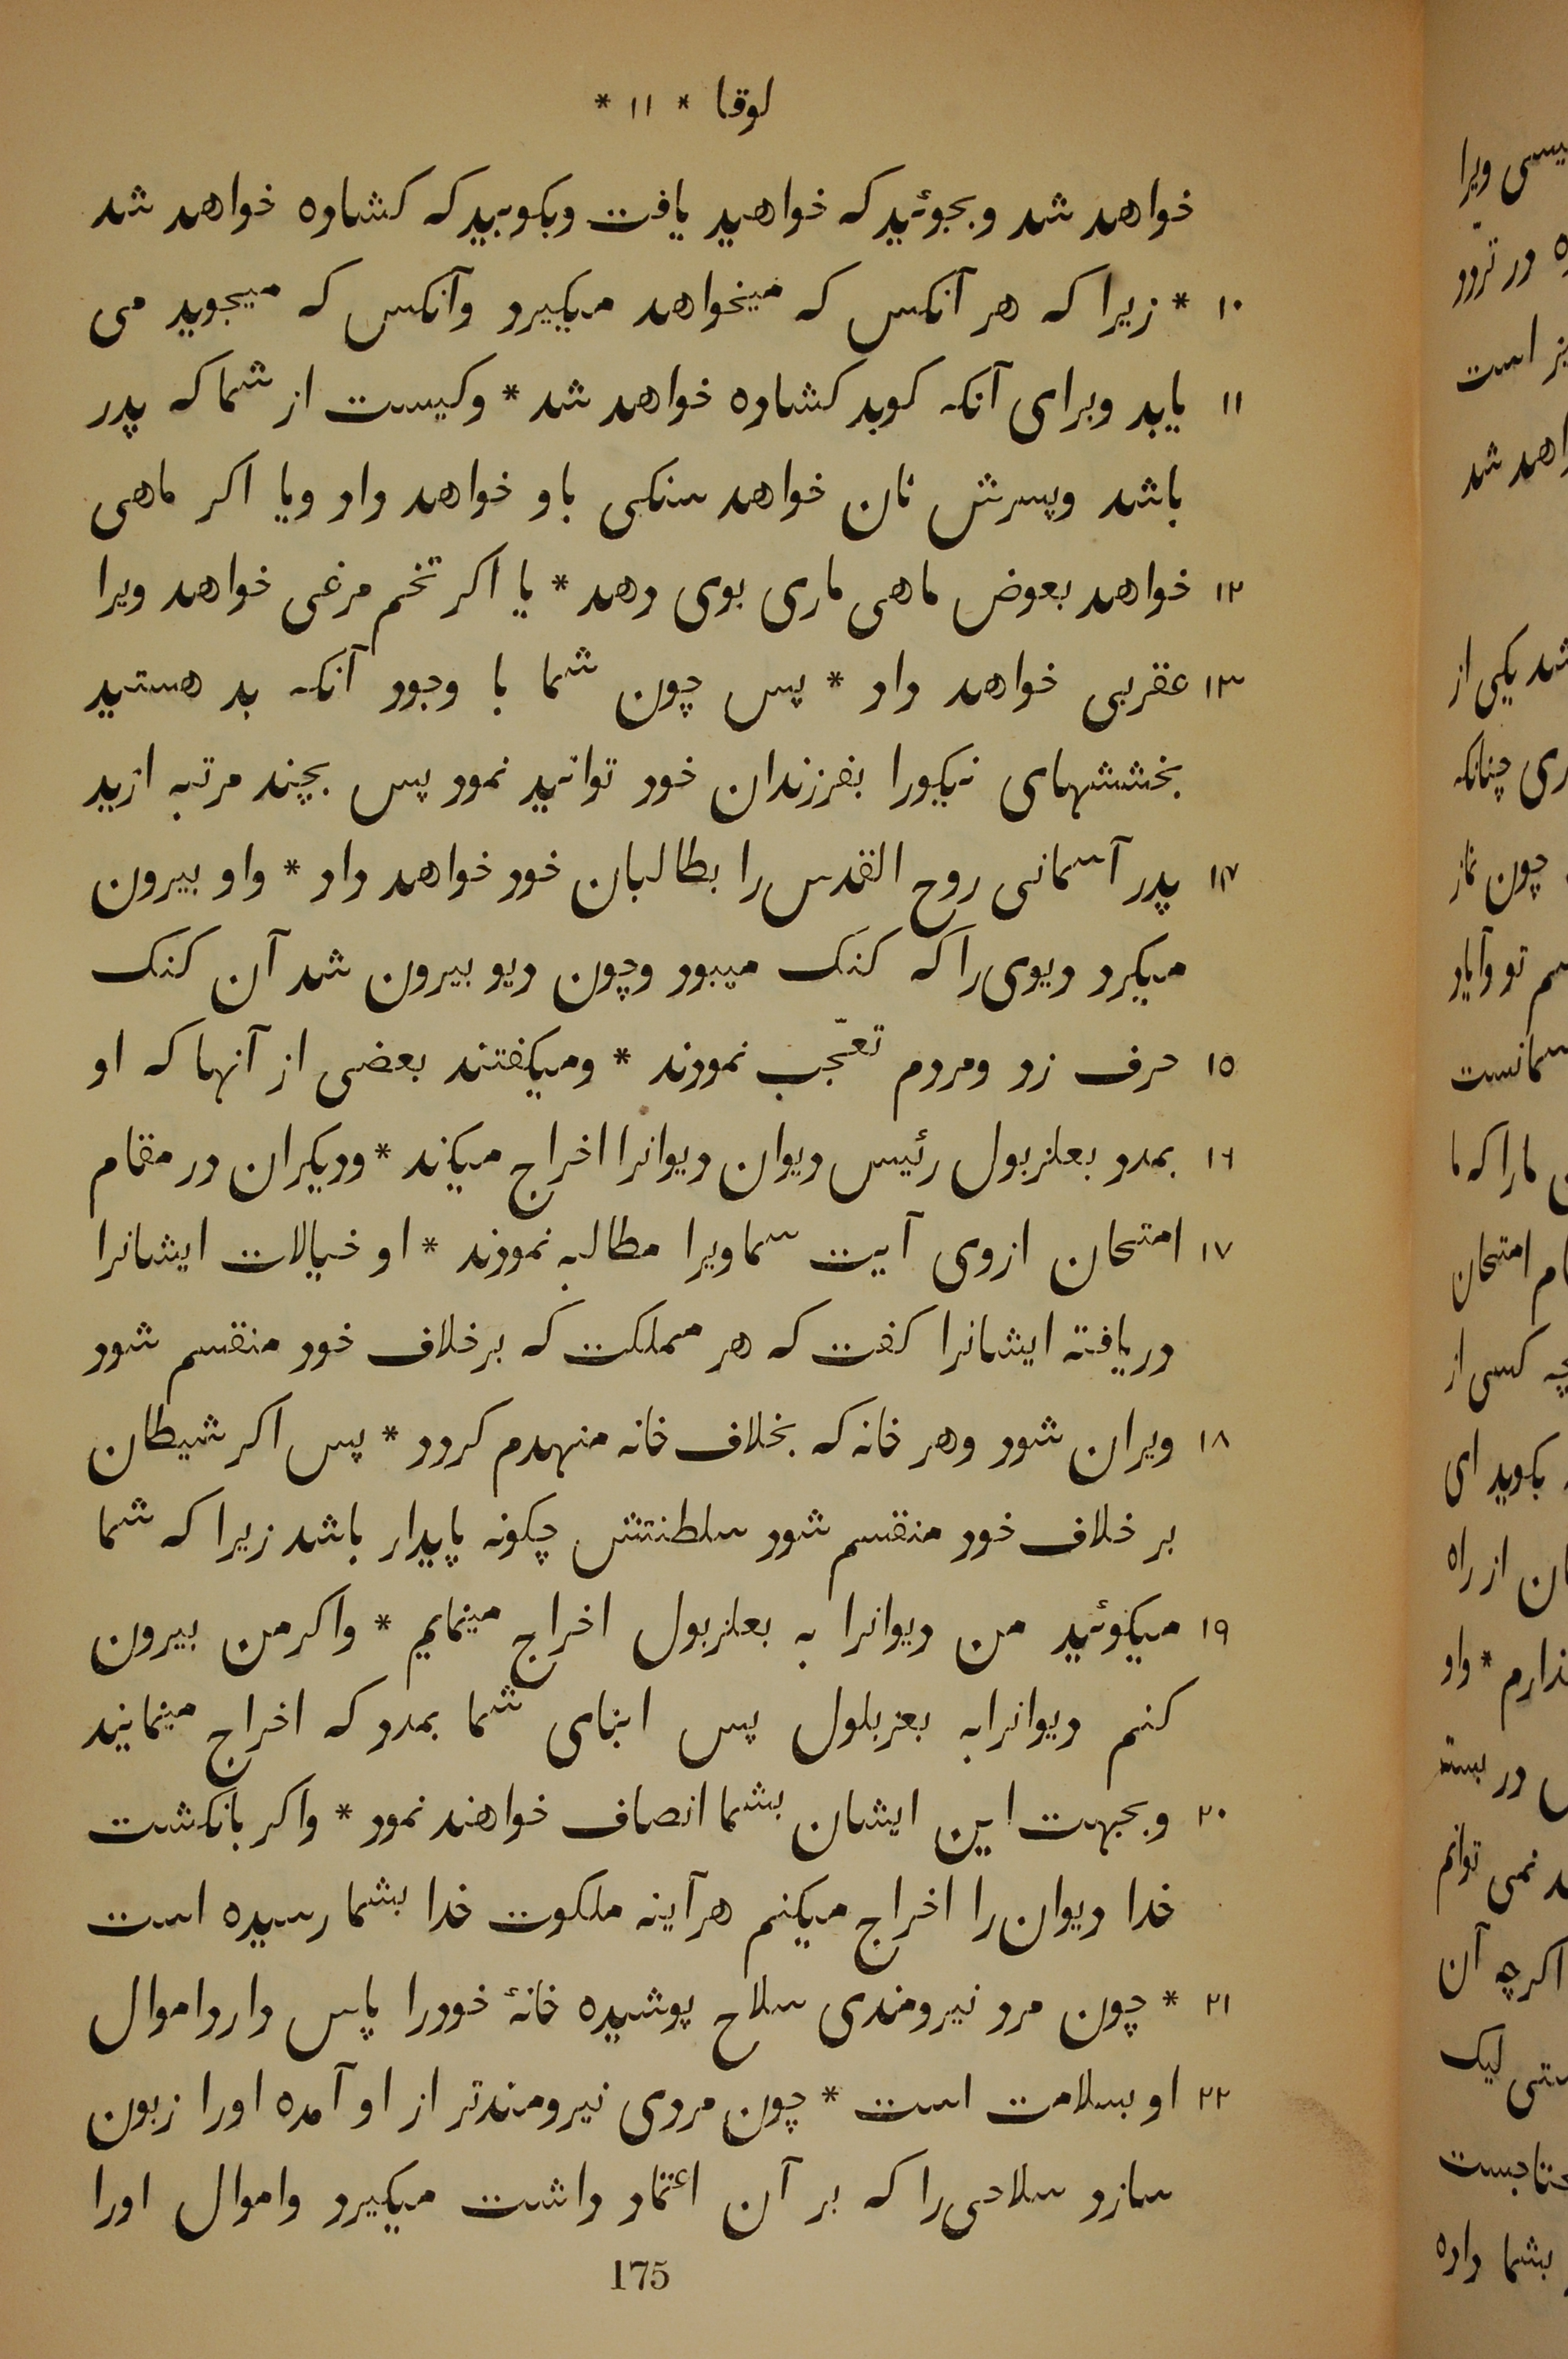 لوقا * ۱۱ *
خواهد شد وبجوئید که خواهید یافت وبکوبید که کشاده خواهد شد
۱۰ * زیرا که هر آنکس که میخواهد میکیرد وآنکس که میجوید می
۱۱ یابد وبرای آنکه کوبد کشاده خواهد شد * وکیست از شما که پدر
باشد وپسرش نان خواهد سنکی باو خواهد داد ویا اکر ماهی
۱۲ خواهد بعوض ماهی ماری بوی دهد * یا اکر تخم مرغی خواهد ویرا
۱۳ عقربی خواهد داد * پس چون شما با وجود آنکه بد هستید
بخششهای نیکورا بفرزندان خود توانید نمود پس بچند مرتبه ازید
۱۴ پدر آسمانی روح القدس را بطالبان خود خواهد داد * واو بیرون
میکرد دیوی را که کنک میبود وچون دیو بیرون شد آن کنک
۱۵ حرف زد ومردم تعجّب نمودند * ومیکفتند بعضی از آنها که او
۱۶ بمدد بعلزبول رئیس دیوان دیوانرا اخراج میکند * ودیکران در مقام
۱۷ امتحان ازوی آیت سماویرا مطالبه نمودند * او خیالات ایشانرا
دریافته ایشانرا کفت که هر مملکت که برخلاف خود منقسم شود
۱۸ ویران شود وهر خانه که بخلاف خانه منهدم کردد * پس اکر شیطان
بر خلاف خود منقسم شود سلطنتش چکونه پایدار باشد زیرا که شما
۱۹ میکوئید من دیوانرا به بعلزبول اخراج مینمایم * واکر من بیرون
کنم دیوانرابه بعزبلول پس ابنای شما بمدد که اخراج مینمایند
۲۰ وبجهت این ایشان بشما انصاف خواهند نمود * واکر بانکشت
خدا دیوان را اخراج میکنم هرآینه ملکوت خدا بشما رسیده است
۲۱ * چون مرد نیرومندی سلاح پوشیده خانهٔ خودرا پاس دارد اموال
۲۲ او بسلامت است * چون مردی نیرومندتر از او آمده اورا زبون
سازد سلاحی را که بر آن اعتماد داشت میکیرد واموال اورا
175